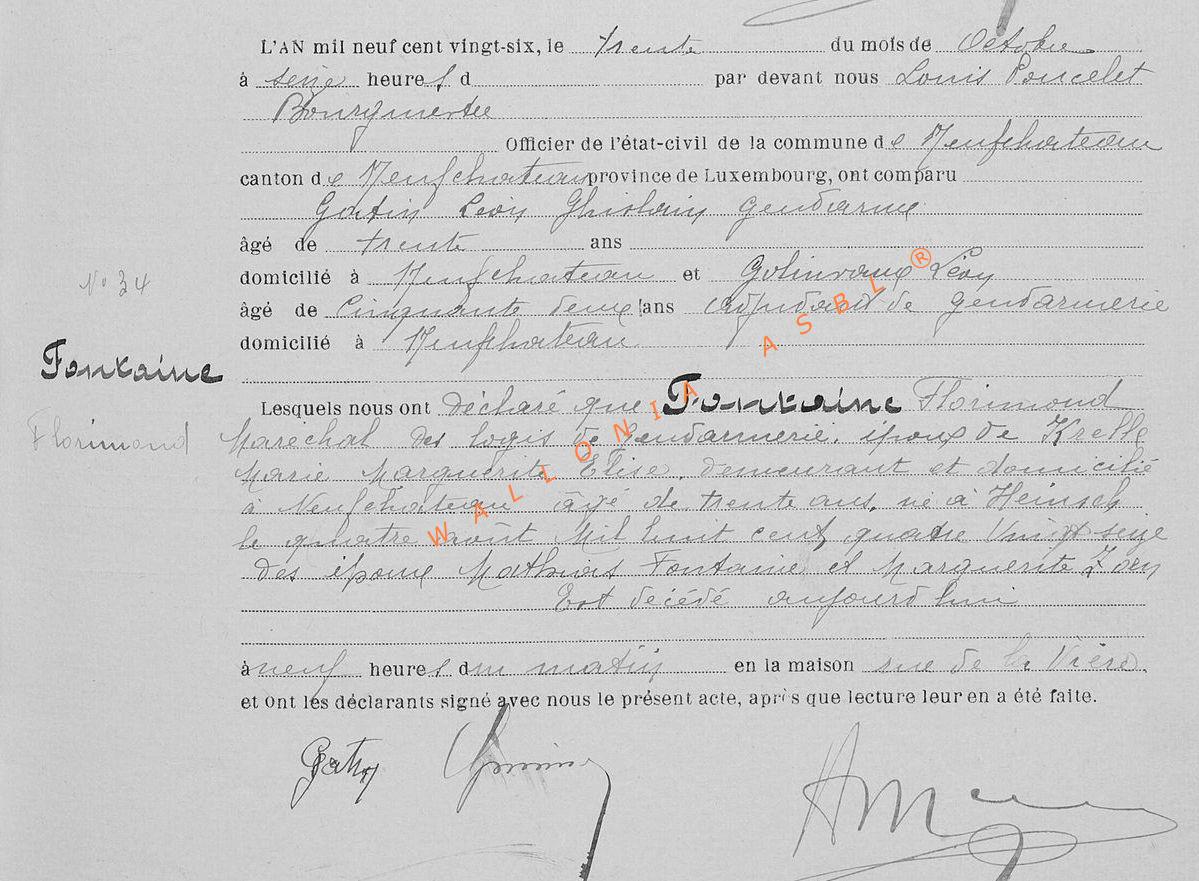 L'AN mil neuf cent vingt-six, le trente du mois de Octobre
à seize heures d par devant nous Louis Poncelet
Bourgmestre
Officier de l'état-civil de la commune de Neufchateau
canton de Neufchateau province de Luxembourg, ont comparu
Léon Ghislain Gendarme
âgé de trente ans
domicilié à Neufchateau et Golinvaux Léon
N° 34
âgé de Cinquante deux ans adjudant de gendarmerie
domicilié à Neufchateau
Fontaine
Lesquels nous ont déclaré que Fontaine Florimond
Florimond
Maréchal des logis de Gendarmerie, époux de Krelle
Marie Marguerite Elise, demeurant et domicilié
à Neufchateau âgé de trente ans, né à Heinsch
le quatre août Mil huit cent quatre Vingt seize
des époux Mathias Fontaine et Marguerite
Est décédé aujourd'hui
à neuf heures du matin en la maison rue de la
et ont les déclarants signé avec nous le présent acte, après que lecture leur en a été faite.
WALLONIA ASBL ®